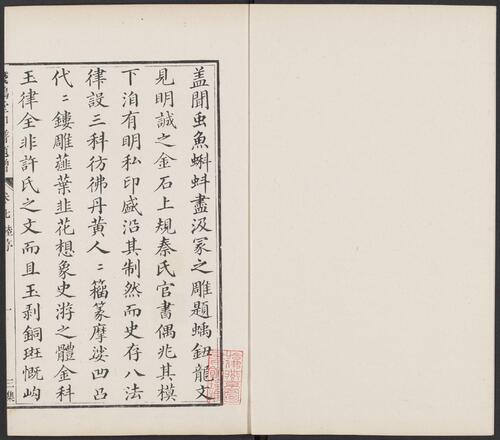 蓋聞虫魚蝌蚪盡汲冢之雕題螭鈕龍文
見明誠之金石上規秦氏官書偶兆其模
下洎有明私印盛沿其制然而史存八法
律設三科彷彿丹黃人〻籒篆摩娑凹凸
代〻鏤雕薤葉韭花想象史游之體金科
玉律全非許氏之文而且玉剥銅斑慨岣
序
一
三集